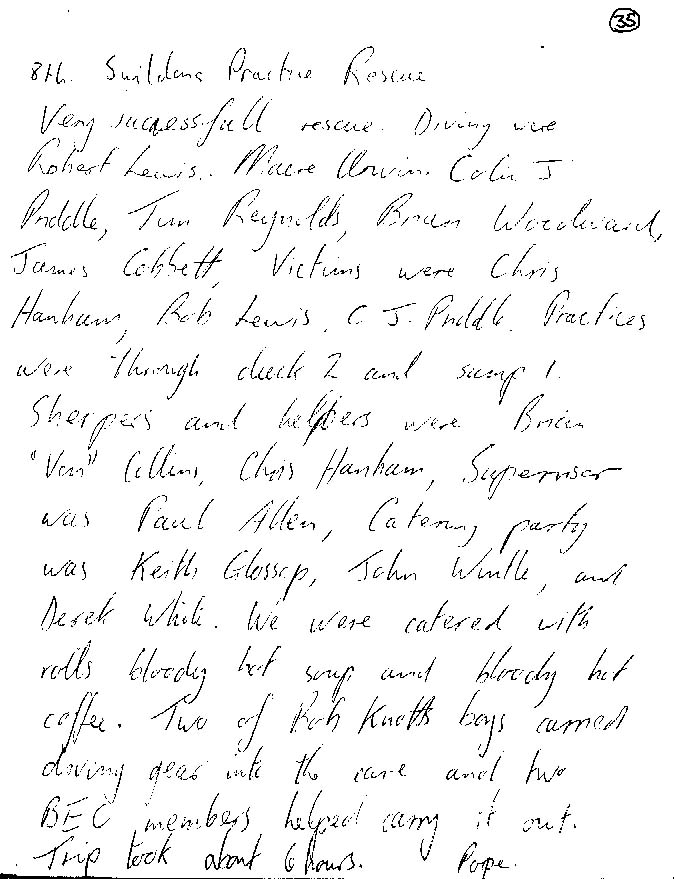 35
8th. Swildons Practice Rescue
Very successfull rescue. Diving were
Robert Lewis. Marre Unwin. Colin J
Priddle, Tim Reynolds, Brian Woodward,
James Cobbett, Victims were Chris
Hanham, Bob Lewis, C J. Priddle. Practices
were through duck 2 and sump 1.
Sherpers and helpers were Brian
"Van" Collins, Chris Hanham, Supervisor
was Paul Allen, Catering party
was Keith Glossop, John Wintle, and
Derek White. We were catered with
rolls bloody hot soup and bloody hot
coffee. Two of Bob Knotts boys carried
diving gear into the cave and two
BEC members helped carry it out.
Trip took about 6 hours. Pope.